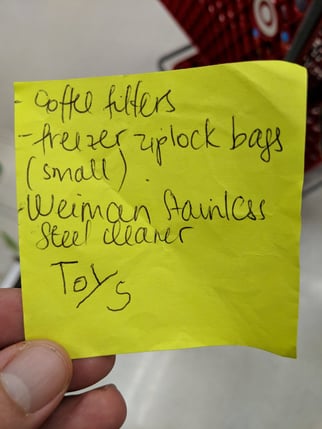 - Coffee filters
- freezer ziplock bags
(small).
- Weiman Stainless
Steel cleaner
Toys